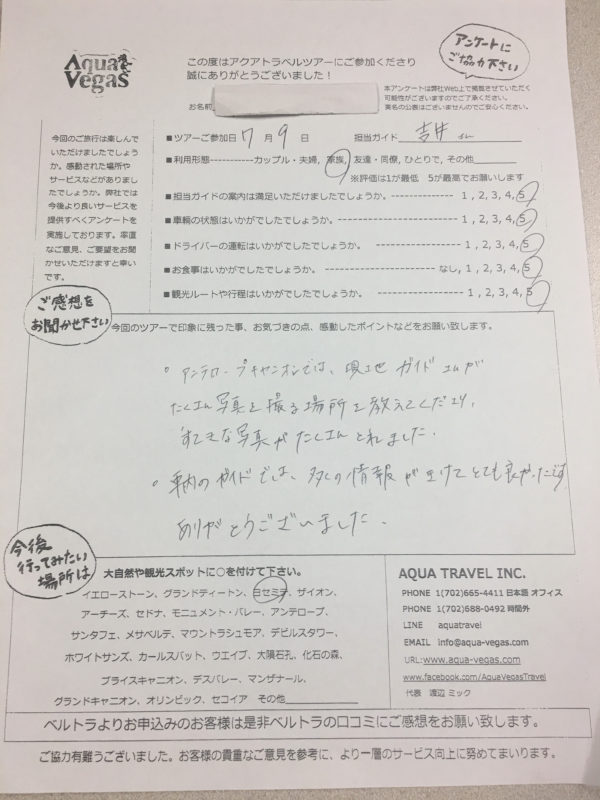 Aqua
Vegas
この度はアクアトラベルツアーにご参加くださり
誠にありがとうございました！
アンケートに
ご協力下さい
本アンケートは弊社Web上で掲載させていただく
可能性がございますのでご了承ください。
実名の公表はございませんのでご安心ください。
お名前
今回のご旅行は楽しんで
いただけましたでしょう
か。感動された場所や
サービスなどがありまし
たでしょうか。弊社では
今後より良いサービスを
提供すべくアンケートを
実施しております。率直
なご意見、ご要望をお聞
かせいただけますと幸い
です。
■ツアーご参加日 7 月 9 日 担当ガイド 吉井 さん
■利用形態-----------カップル・夫婦, 家族, 友達・同僚, ひとりで, その他
※評価は1が最低 5が最高でお願いします
■担当ガイドの案内は満足いただけましたでしょうか。------------ 1 , 2, 3, 4, 5
■車輌の状態はいかがでしたでしょうか。------------------ 1 , 2, 3, 4, 5
■ドライバーの運転はいかがでしたでしょうか。 -------------- 1 , 2, 3, 4, 5
■お食事はいかがでしたでしょうか。 ---------------- なし, 1, 2, 3, 4, 5
■観光ルートや行程はいかがでしたでしょうか。-------------- 1 , 2, 3, 4, 5
ご感想を
お聞かせ下さい
今回のツアーで印象に残った事、お気づきの点、感動したポイントなどをお願い致します。
。アンテロープキャニオンでは、現地ガイドさんが
たくさん写真を撮る場所を教えてくださり、
すてきな写真がたくさんとれました。
。車内のガイドでは、多くの情報が聞けてとても良かったです
ありがとうございました。
今後
行ってみたい
場所は
大自然や観光スポットに○を付けて下さい。
イエローストーン、グランドティートン、ヨセミテ、ザイオン、
アーチーズ、セドナ、モニュメント・バレー、アンテロープ、
サンタフェ、メサベルデ、マウントラシュモア、デビルスタワー、
ホワイトサンズ、カールスバット、ウエイブ、大隕石孔、化石の森、
ブライスキャニオン、デスバレー、マンザナール、
グランドキャニオン、オリンピック、セコイア その他
AQUA TRAVEL INC.
PHONE 1(702)665-4411 日本語 オフィス
PHONE 1(702)688-0492 時間外
LINE aquatravel
EMAIL info@aqua-vegas.com
URL:www.aqua-vegas.com
www.facebook.com/AquaVegasTravel
代表 渡辺 ミック
ベルトラよりお申込みのお客様は是非ベルトラの口コミにご感想をお願い致します。
ご協力有難うございました。お客様の貴重なご意見を参考に、より一層のサービス向上に努めてまいります。